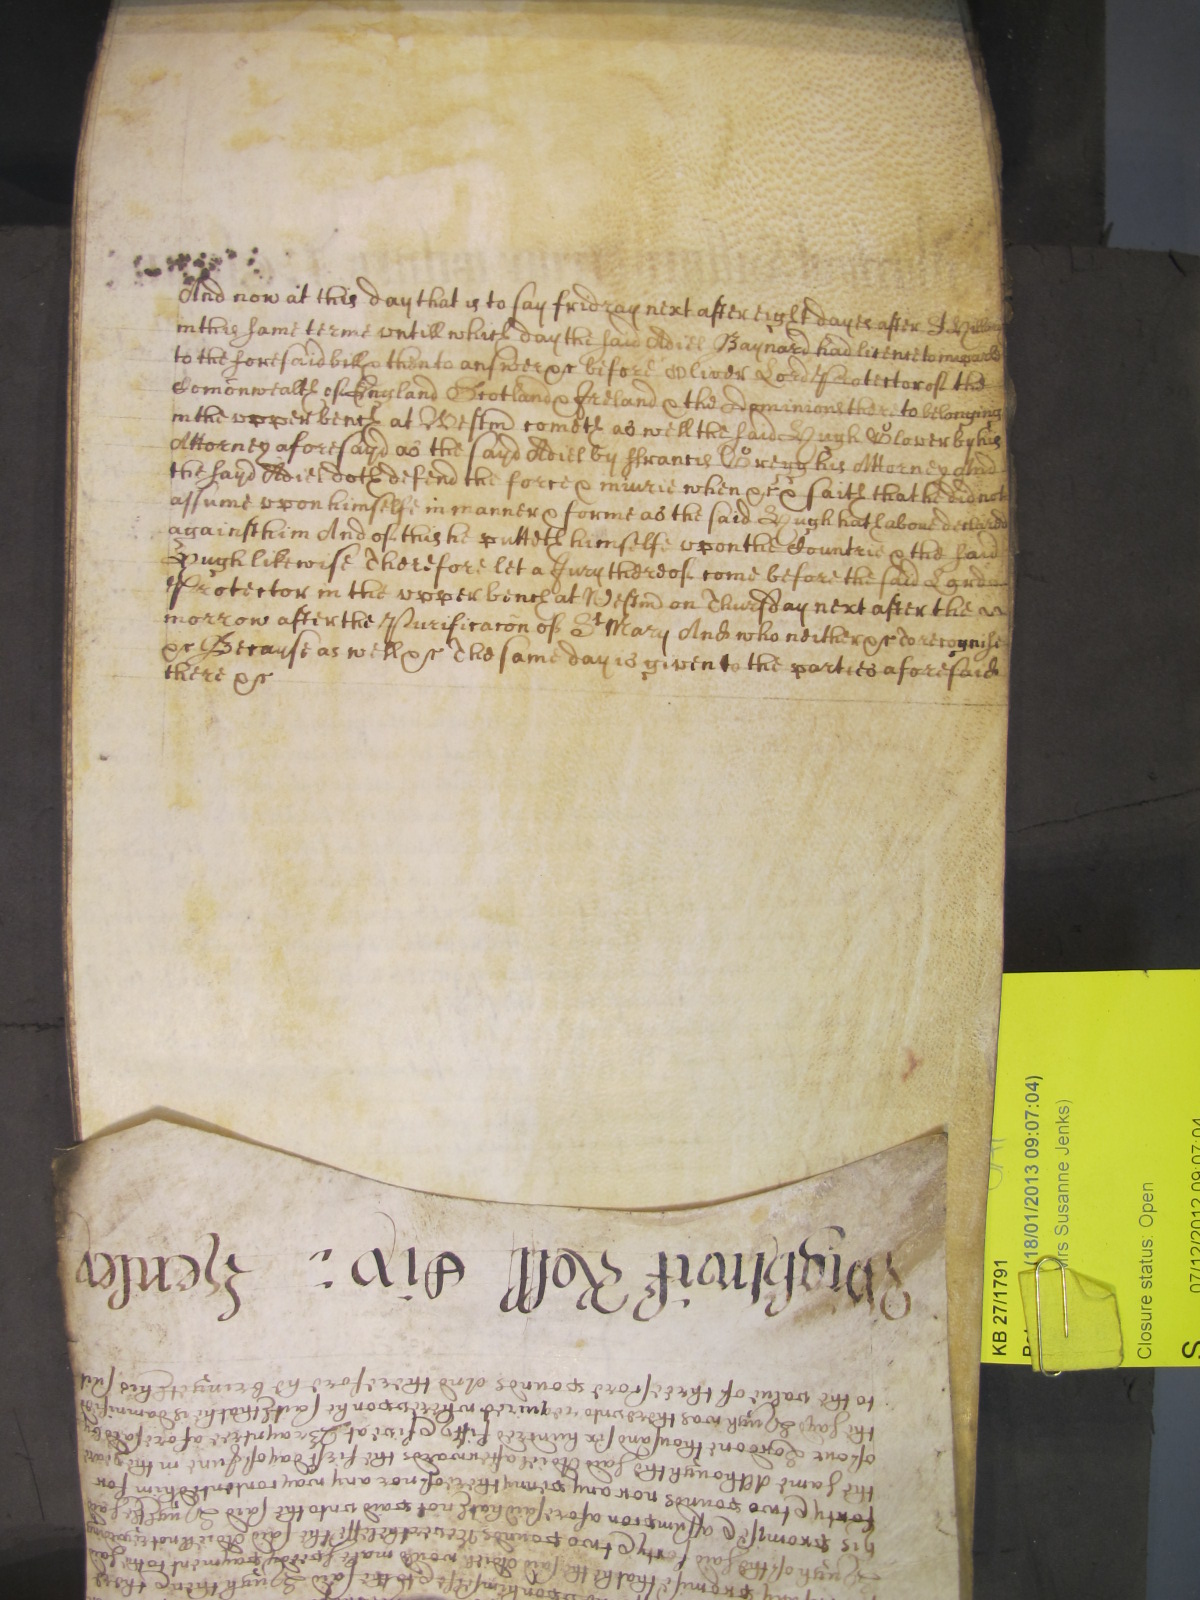 And now at this day that is to say fridray next after eight dayes after St Hillary
in this same terme untill which day the said Adiel Baynard had licence to imparle
to the foresaid bill & then to answer &c before Oliver Lord Protector of the
Comōnwealth of England Scotland & Ireland & the Dominions thereto belonging
in the upper bench at Westm̄ cometh as well the said Hugh Glower by his
Attorney aforesayd as the sayd Adiel by ffrancis Gregg his Attorney And
the sayd Adiel doth defend the force & iniurie when &c & saith that he did not
assume upon himselfe in manner & forme as the said Hugh hath above declared
against him And of this he putteth himselfe upon the Countrie & the said
Hugh likewise Therefore let a Jury thereof come before the said Lord
Protector in the upper bench at Westm̄ on Thursday next after the
morrow after the Purificacon of St Mary And who neither &c To recognise
&c Because as well &c The same day is given to the parties aforesaid
there &c
Wightwick Roll Div:
to the value of threescore pounds And therefore he bringeth his suit
the said Hugh was thereunto required whereupon he saith that he is damnified
of our Lord one thousand six hundred fifty & five at Brayntree aforesaid by
the same Although the said Adiel afterwards the first day of June in the yeare
forty & two pounds nor any penny thereof nor any way contented him for
his promise & assumpcon aforesaid hath not paid unto the said Hugh the said
Hugh of the said forty & two pounds Neverthelesse the said Adiel not regarding
promise that he the said Adiel would make speedy payment to the said
upon himselfe & to the said Hugh then & there
KB 27/1791
(18/01/2013 09:07:04)
Mrs Susanne Jenks)
Closure status: Open
07/12/2012 09:07:04